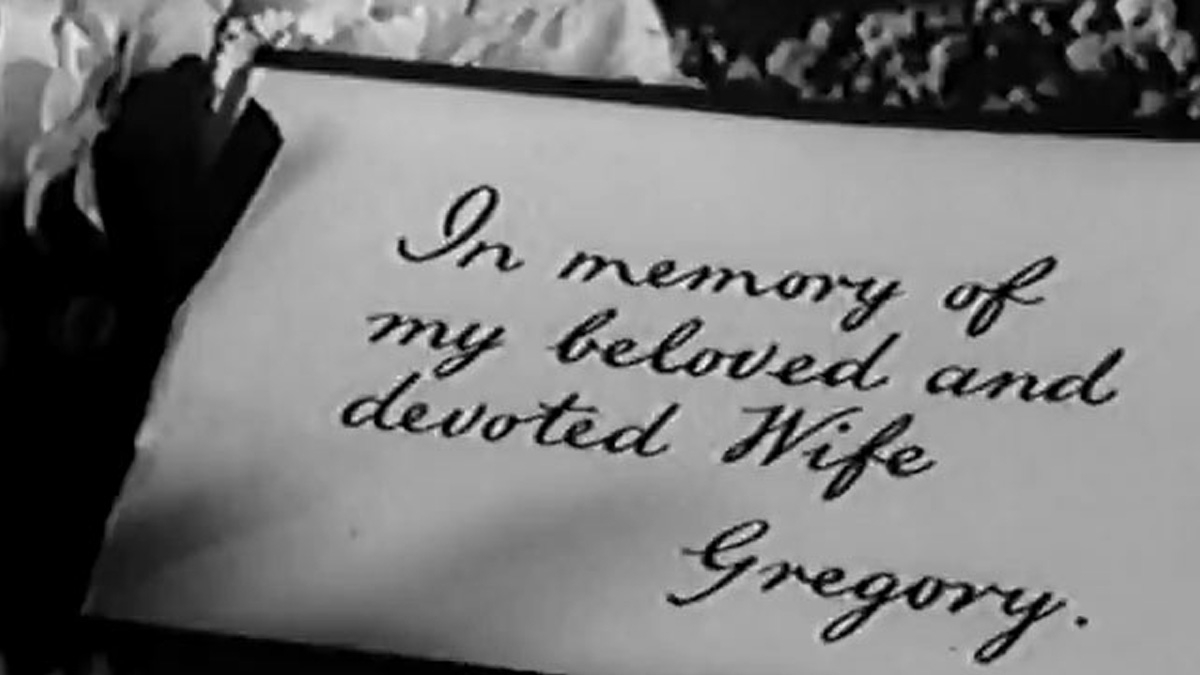 In memory of
my beloved and
devoted Wife
Gregory.